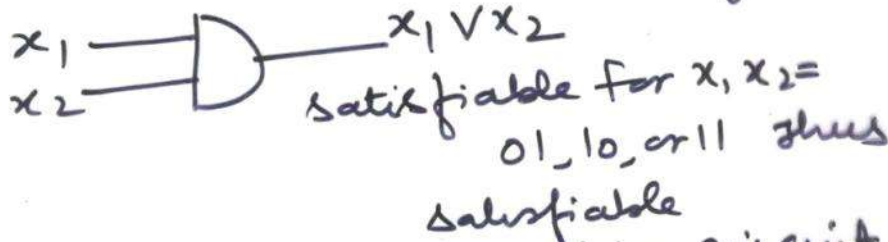 x1 x1 ∨ x2
x2
satisfiable for x1 x2 =
01, 10, or 11 thus
satisfiable
circuit